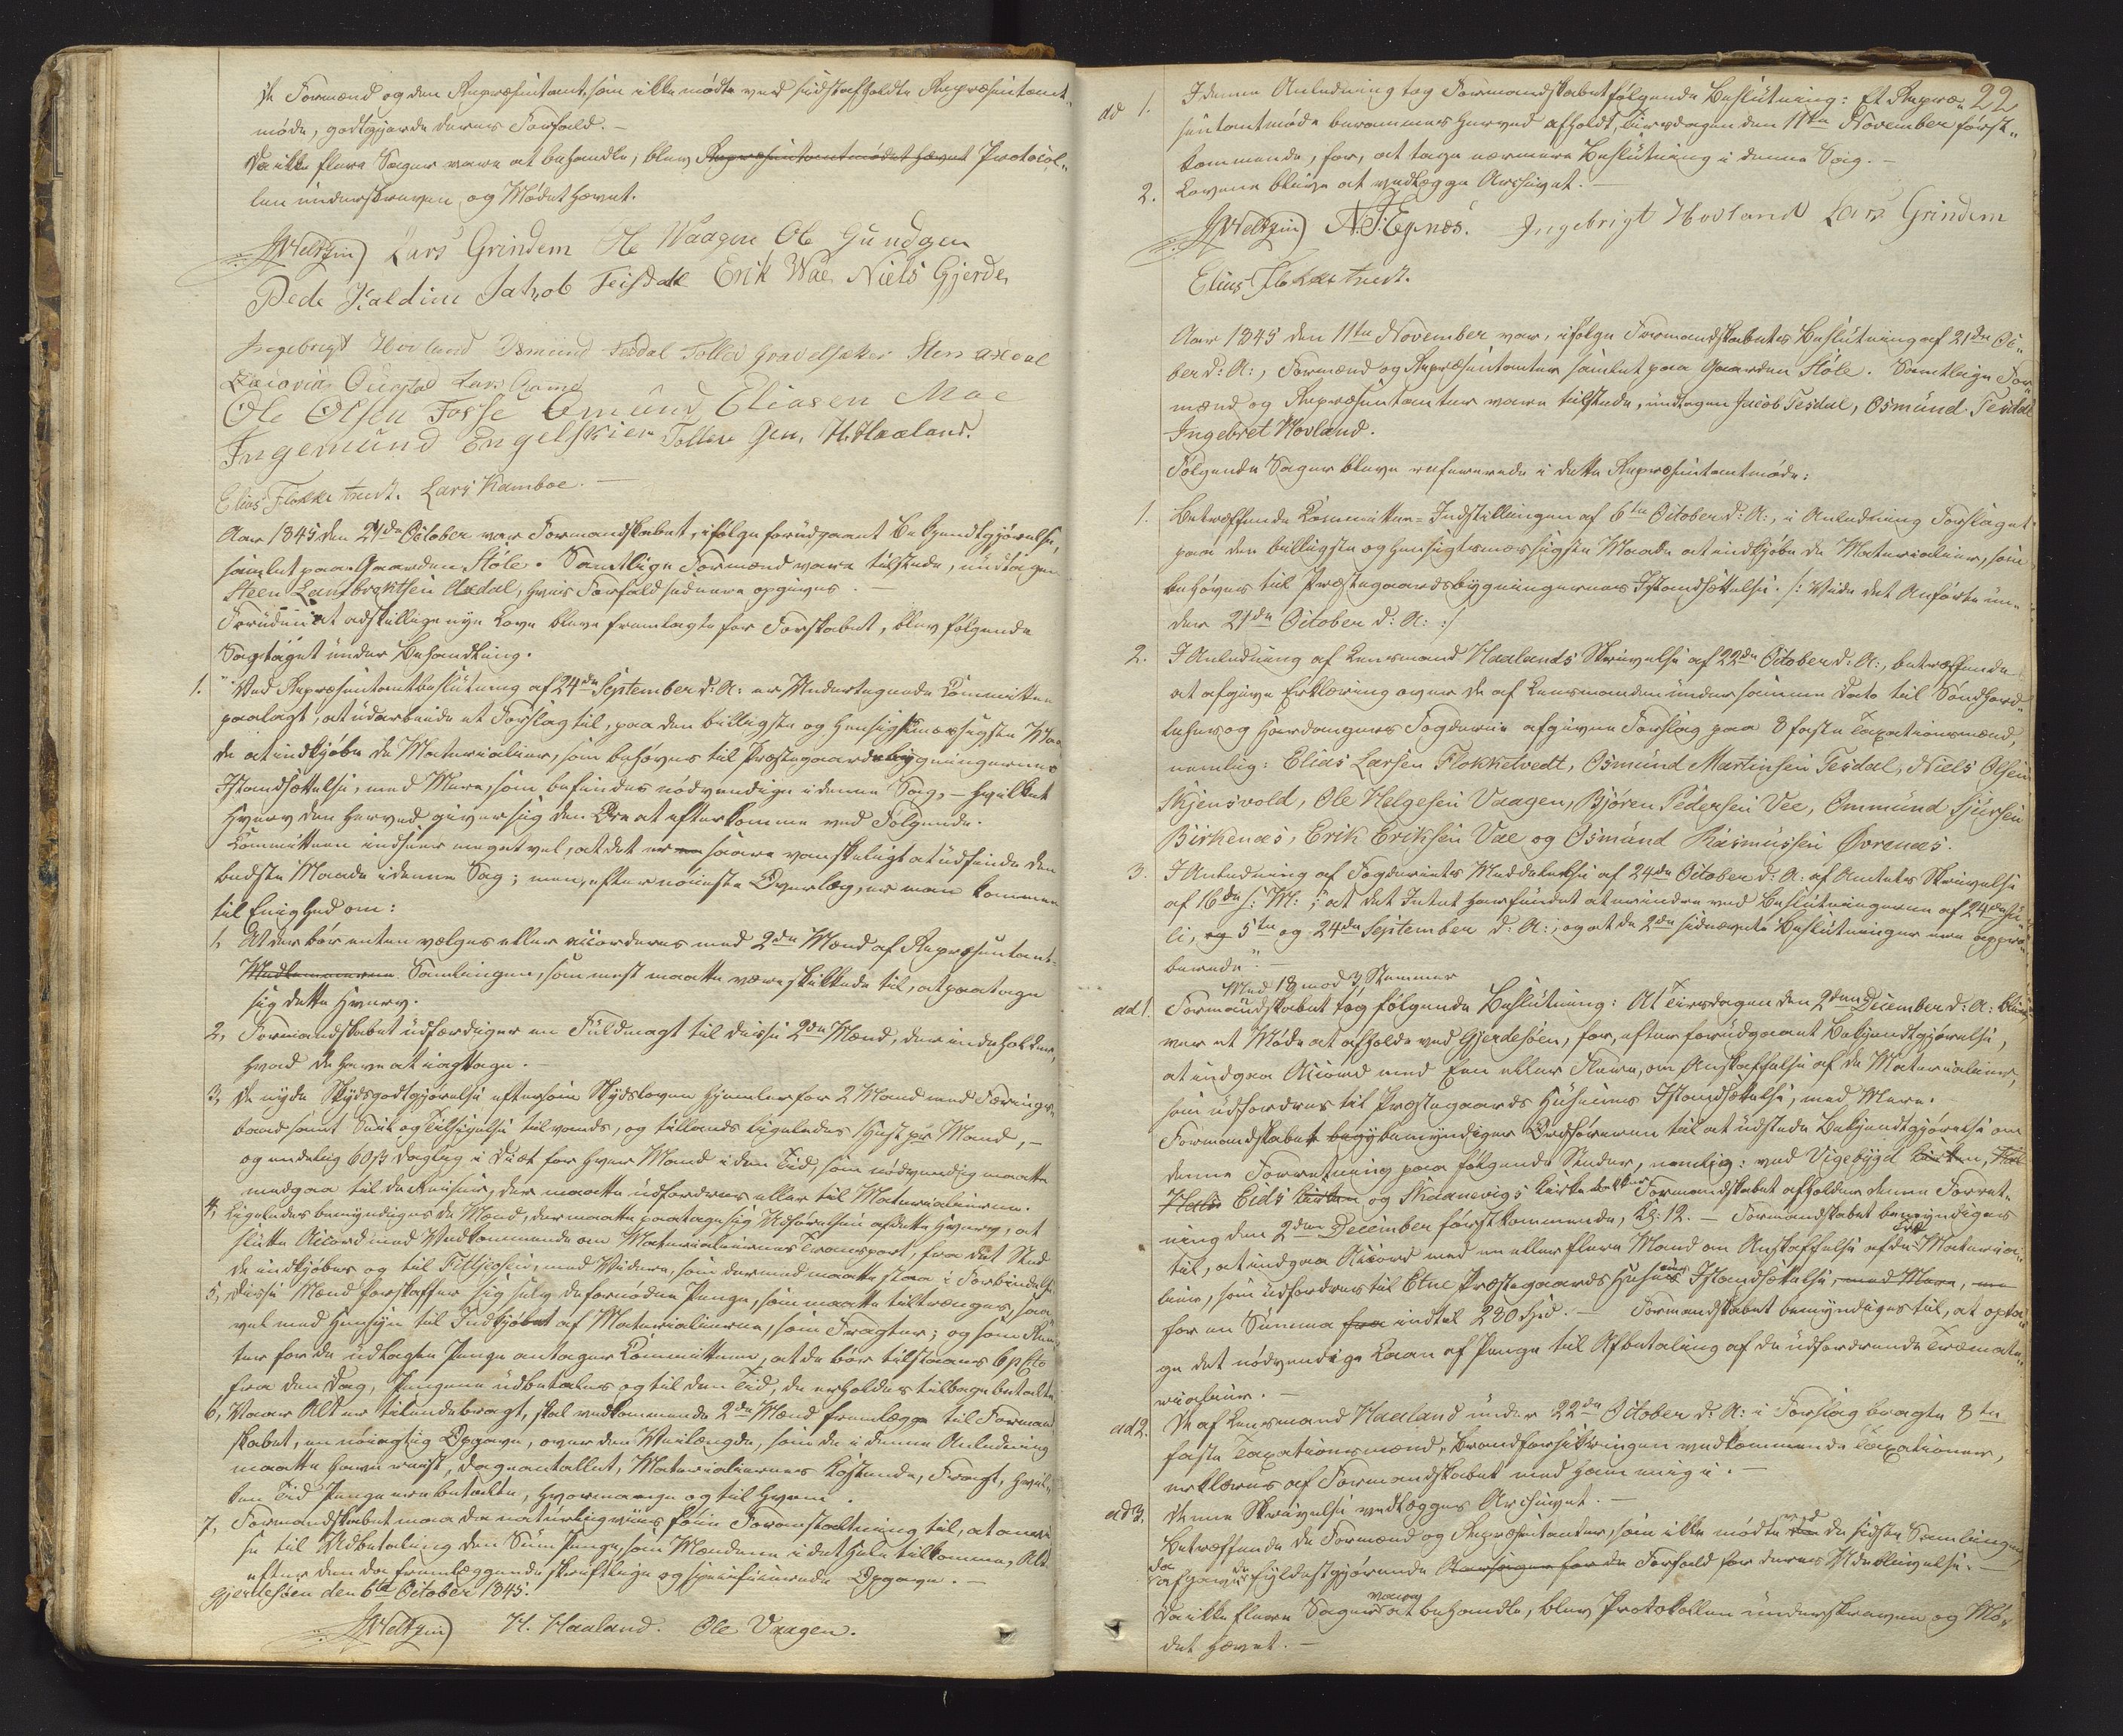 De Formænd og den Repræsentant, som ikke mødte ved sidstafholdte Repræsentant-
møde, godtgjorde deres Forfald. –
Da ikke flere Sager vare at behandle, blev Repræsentantmødet hævet Protocol-
len underskreven og Mødet hævet.
JWeltzin) Lars Grindem Ole Waagen Ole Gundgen
Peder Kaldim Jakob Teisdal Erik Wae Niels Gjerde
Ingebrigt Hovland Osmund Tesdal Tolled Gravelsæter Sten axdal
Lars Rame
Ole Olsen Fosse Omund Eliasen Moe
Ingemund Engelskien H. Haaland.
Elias Flokketvedt. Lars Kamboe. –
Aar 1845 den 21de October var Formandskabet, ifølge forudgaaet Bekjendtgjørelse,
samlet paa Gaarden Støle. Samtlige Formænd vare tilstede, undtagen
Steen Lambrektsen Axdal, hvis Forfald sidenere opgives. –
Foruden at adskillige nye Love bleve fremlagte for Forskabet, blev følgende
Sag taget under Behandling.
1. "Ved Repræsentantbeslutning af 24de September d: A: er Undertegnede Committee
paalagt, at udarbeide et Forslag til, paa den billigste og hensigtsmæssigste Maa-
de at indkjøbe de Materialier, som behøves til Præstegaardsbygningernes
Istandsættelse, med Mere, som befindes nødvendige i denne Sag, – hvilket
Hverv den herved giver sig den Ære at efterkomme ved Følgende.
Committeen indseer meget vel, at det er en saare vanskeligt at udfinde den
bedste Maade i denne Sag; men, efter nøieste Overlæg, er man kommen
til Enighed om:
1, At der bør enten vælges eller accorderes med 2de Mænd af Repræsentant-
Medlemmerne Samlingen, som mest maatte være skikkede til, at paatage
sig dette Hverv.
2, Formandskabet udfærdiger en Fuldmagt til disse 2de Mænd, der indeholder,
hvad de have at iagttage. –
3, De nyde Skydsgodtgjørelse eftersom Skydsloven hjemler for 2 Mand med Færings-
baad samt Seil og Tilsigelse tilvands, og tillands ligeledes 1 Hest pr Mand, –
og endelig 60 ß daglig i Diæt for hver Mand i den Tid, som nødvendig maatte
medgaa til de Reiser, der maatte udfordres eller til Materialierne.
4, Ligeledes bemyndiges de Mænd, der maatte paatage sig Udførelsen af dette Hverv, at
slutte Accord med Vedkommende om Materialiernes Transport, fra det Sted
de indkjøbes og til Gjerdesøen, med Videre, som dermed maatte staa i Forbindelse.
5, Disse Mænd forskaffer sig selv de fornødne Penge, som maatte tiltrænges, saa
vel med Hensyn til Indkjøbet af Materialierne, som Fragter; og som Ren-
ter for de udlagte Penge antager Committeen, at de bør tilstaaes 6 pCto
fra den Dag, Pengene udbetales og til den Tid, de erholdes tilbagebetalte.
6, Naar Alt er tilendebragt, skal vedkommende 2de Mænd fremlægge til Formand-
skabet, en nøiagtig Opgave, over den Veilængde, som de i denne Anledning
maatte have reist, Dageantallet, Materialiernes Kostende, Fragt, hvil-
ken Tid Penge ere betalte, hvormange og til hvem.
7, Formandskabet maa da naturligviis føie Foranstaltning til, at anvi-
se til Udbetaling den Sum Penge, som Mændene i det Hele tilkomme, Alt
efter den da fremlæggende skriftlige og specificerede Opgave. –
Gjerdesøen den 6te October 1845.
JWeltzin) H. Haaland. Ole Vaagen.
22
ad 1. I denne Anledning tog Formandskabet følgende Beslutning: Et Repræ-
sentantmøde berammes herved afholdt, Tirsdagen den 11te November først-
kommende, for, at tage nærmere Beslutning i denne Sag. –
2. Lovene bleve at vedlægge Archivet. –
JWeltzin) Ingebrigt Hovland Lars Grindem
Elias Flokketvedt.
Aar 1845 den 11te November var, ifølge Formandskabets Beslutning af 21de Oc-
ber d: A:, Formænd og Repræsentanter samlet paa Gaarden Støle. Samtlige For-
mænd og Repræsentanter vare tilstede, undtagen Jacob Tesdal, Osmund Tesdal
Ingebret Hovland.
Følgende Sager bleve refererede i dette Repræsentantmøde:
1. Betræffende Committee-Indstillingen af 6te October d: A:, i Anledning Forslaget
paa den billigste og hensigtsmæssigste Maade at indkjøbe de Materialier, som
behøves til Præstegaardsbygningernes Istandsættelse. /: Vide det Anførte un-
der 21de October d: A: :/
2. I Anledning af Lensmand Haalands Skrivelse af 22de October d: A:, betræffende
at afgive Erklæring over de af Lensmanden under samme Dato til Søndhord-
lehns og Hardangers Fogderie afgivne Forslag paa 8 faste Taxationsmænd,
nemlig: Elias Larsen Flokketvedt, Osmund Martinsen Tesdal, Niels Olsen
Skjensvold, Ole Helgesen Vaagen, Bjøren Pedersen Vee, Ommund Sjursen
Birkenæs, Erik Eriksen Vae og Osmund Rasmussen Øvrenæs.
3. I Anledning af Fogderiets Meddelelse af 24de October d: A: af Amtets Skrivelse
af 16de s: M:; "at det Intet har fundet at erindre ved Beslutningerne af 24de Ju-
li, og 5te og 24de September d: A:, og at de 2de sidnævnte Beslutninger ere appro-
berede". –
Med 18 mod 3 Stemmer
ad 1. Formandskabet tog følgende Beslutning: At Tirsdagen den 2den December d: A: bli-
ver et Møde at afholde ved Gjerdesøen, for, efter forudgaaet Bekjendtgjørelse,
at indgaa Accord med Een eller Flere, om Anskaffelse af de Materialier,
som udfordres til Præstegaards Husenes Istandsættelse, med Mere.
Formandskabet begy bemyndiger Ordføreren til at udstede Bekjendtgjørelse om
denne Forretning paa følgende Steder, nemlig: ved Vigebygd Kirken,
Eids Kirken og Skaanevigs Kirkebakker Formandskabet afholder denne Forret-
ning den 2den December førstkommende, Kl: 12. – Formandskabet bemyndiges
til, at indgaa Accord med een eller flere Mand om Anskaffelse af de Træ Materia-
lier, som udfordres til Etne Præstegaards Husenes Istandsættelse, med Mere,
for en Summa fra indtil 280 Spd. – Formandskabet bemyndiges til, at opta-
ge det nødvendige Laan af Penge til Afbetaling af de udfordrende Træmate-
rialier. –
ad 2. De af Lensmand Haaland under 22de October d: A: i Forslag bragte 8te
faste Taxationsmænd, Brandforsikringen vedkommende Taxationer,
erklæres af Formandskabet med ham enig i. –
ad 3. Denne Skrivelse vedlægges Archivet. –
Betræffende de Formænd og Repræsentanter, som ikke mødte ved de sidste Samlinger,
da afgave de fyldestgjørende Forfald for deres Udeblivelse. –
Da ikke flere Sager vare at behandle, blev Protokollen underskreven og Mø-
det hævet. –